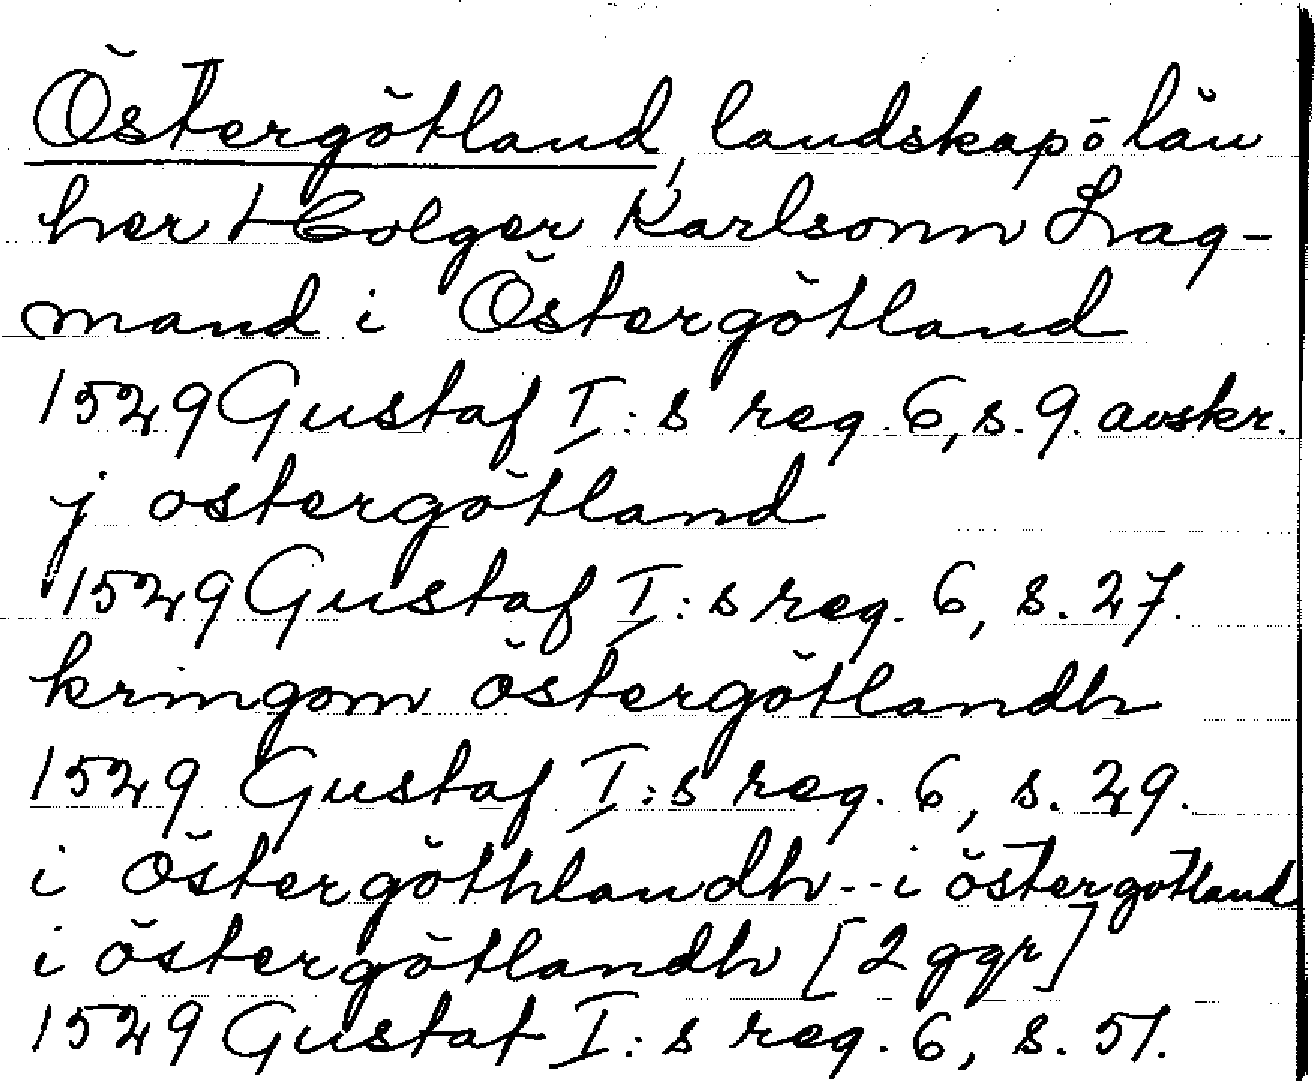 Östergötland, landskap o län
her Holger Karlsonn Lag-
mand i Östergötland
1529 Gustaf I:s reg. 6, s. 9. avskr.
j ostergötland
1529 Gustaf I:s reg. 6, s. 27.
kringom östergötlandh
1529 Gustaf I:s reg. 6, s. 29.
i Östergöthlandh -- i östergotland
i östergötlandh [2 ggr]
1529 Gustaf I:s reg. 6, s. 51.